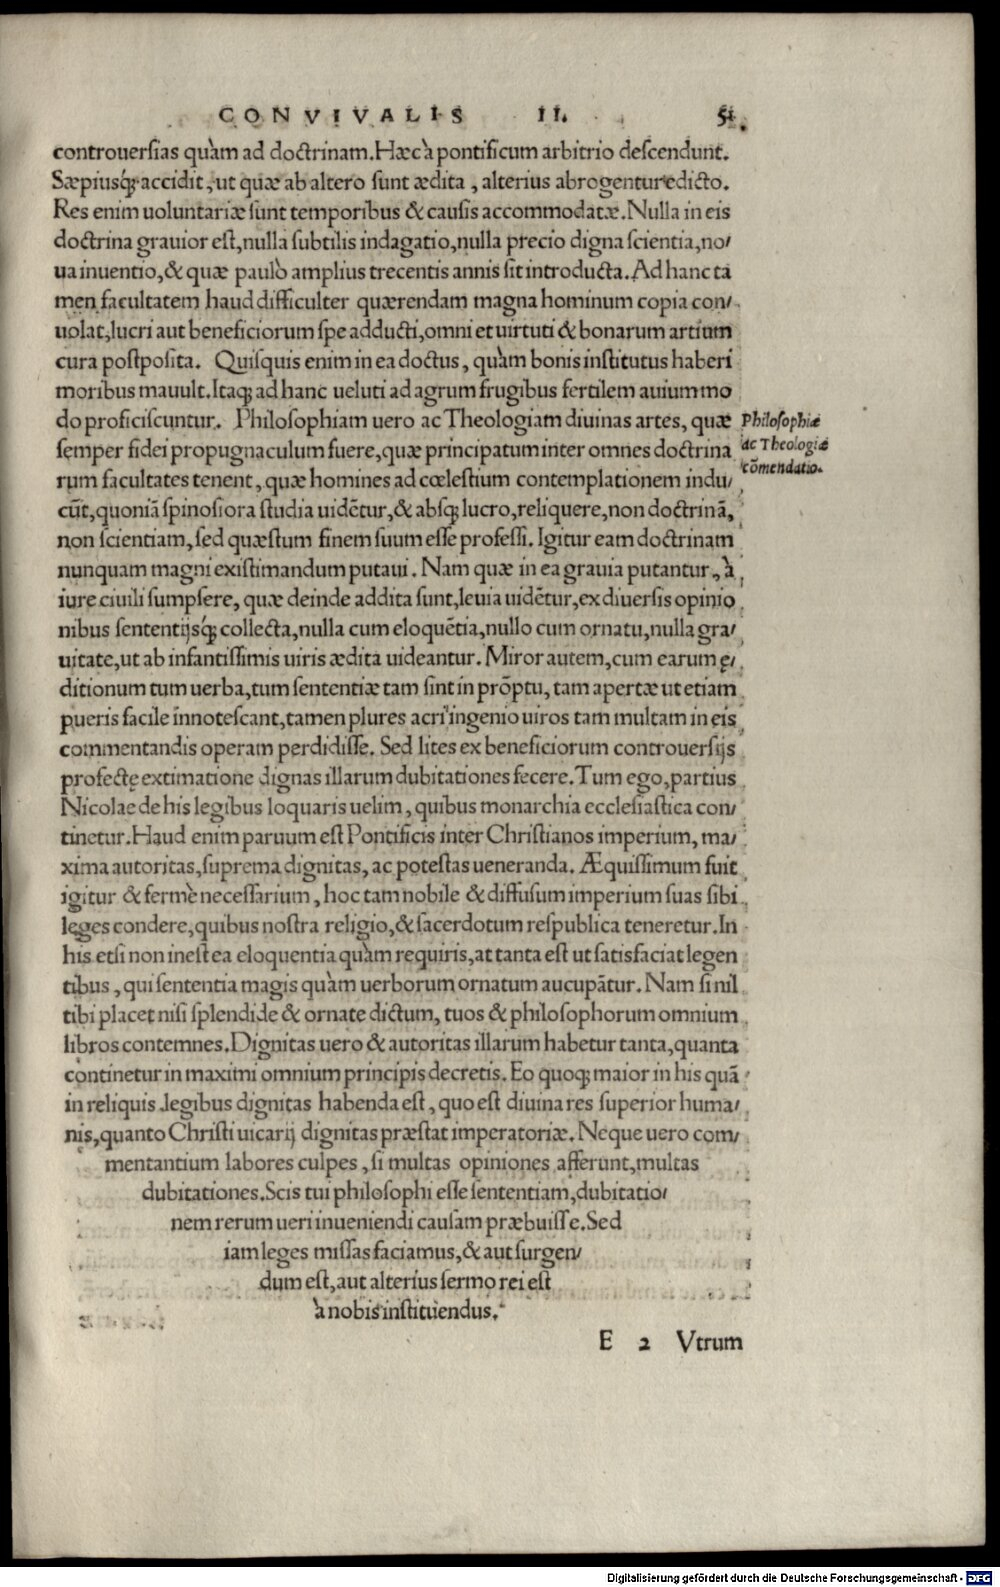 CONVIVALIS II. 51
controuersias quàm ad doctrinam. Hæc à pontificum arbitrio descendunt.
Sæpiusq́; accidit, ut quæ ab altero sunt ædita, alterius abrogentur edicto.
Res enim uoluntariæ sunt temporibus & causis accommodatæ. Nulla in eis
doctrina grauior est, nulla subtilis indagatio, nulla precio digna scientia, no/
ua inuentio, & quæ paulò amplius trecentis annis sit introducta. Ad hanc ta
men facultatem haud difficulter quærendam magna hominum copia con/
uolat, lucri aut beneficiorum spe adducti, omni et uirtuti & bonarum artium
cura postposita. Quisquis enim in ea doctus, quàm bonis institutus haberi
moribus mauult. Itaq; ad hanc ueluti ad agrum frugibus fertilem auium mo
do proficiscuntur. Philosophiam uero ac Theologiam diuinas artes, quæ
Philosophiæ
semper fidei propugnaculum fuere, quæ principatum inter omnes doctrina
ac Theologiæ
rum facultates tenent, quæ homines ad cœlestium contemplationem indu/
cōmendatio.
cūt, quoniā spinosiora studia uidētur, & absq; lucro, reliquere, non doctrinā,
non scientiam, sed quæstum finem suum esse professi. Igitur eam doctrinam
nunquam magni existimandum putaui. Nam quæ in ea grauia putantur, à
iure ciuili sumpsere, quæ deinde addita sunt, leuia uidētur, ex diuersis opinio
nibus sententijsq́; collecta, nulla cum eloquētia, nullo cum ornatu, nulla gra/
uitate, ut ab infantissimis uiris ædita uideantur. Miror autem, cum earum ę/
ditionum tum uerba, tum sententiæ tam sint in prōptu, tam apertæ ut etiam
pueris facile innotescant, tamen plures acri ingenio uiros tam multam in eis
commentandis operam perdidisse. Sed lites ex beneficiorum controuersijs
profectę extimatione dignas illarum dubitationes fecere. Tum ego, partius
Nicolae de his legibus loquaris uelim, quibus monarchia ecclesiastica con/
tinetur. Haud enim paruum est Pontificis inter Christianos imperium, ma/
xima autoritas, suprema dignitas, ac potestas ueneranda. Æquissimum fuit
igitur & fermè necessarium, hoc tam nobile & diffusum imperium suas sibi
leges condere, quibus nostra religio, & sacerdotum respublica teneretur. In
his etsi non inest ea eloquentia quàm requiris, at tanta est ut satisfaciat legen
tibus, qui sententia magis quàm uerborum ornatum aucupātur. Nam si nil
tibi placet nisi splendide & ornate dictum, tuos & philosophorum omnium
libros contemnes. Dignitas uero & autoritas illarum habetur tanta, quanta
continetur in maximi omnium principis decretis. Eo quoq; maior in his quā
in reliquis legibus dignitas habenda est, quo est diuina res superior huma/
nis, quanto Christi uicarij dignitas præstat imperatoriæ. Neque uero com/
mentantium labores culpes, si multas opiniones afferunt, multas
dubitationes. Scis tui philosophi esse sententiam, dubitatio/
nem rerum ueri inueniendi causam præbuisse. Sed
iam leges missas faciamus, & aut surgen/
dum est, aut alterius sermo rei est
à nobis instituendus.
E 2 Vtrum
Digitalisierung gefördert durch die Deutsche Forschungsgemeinschaft - DFG